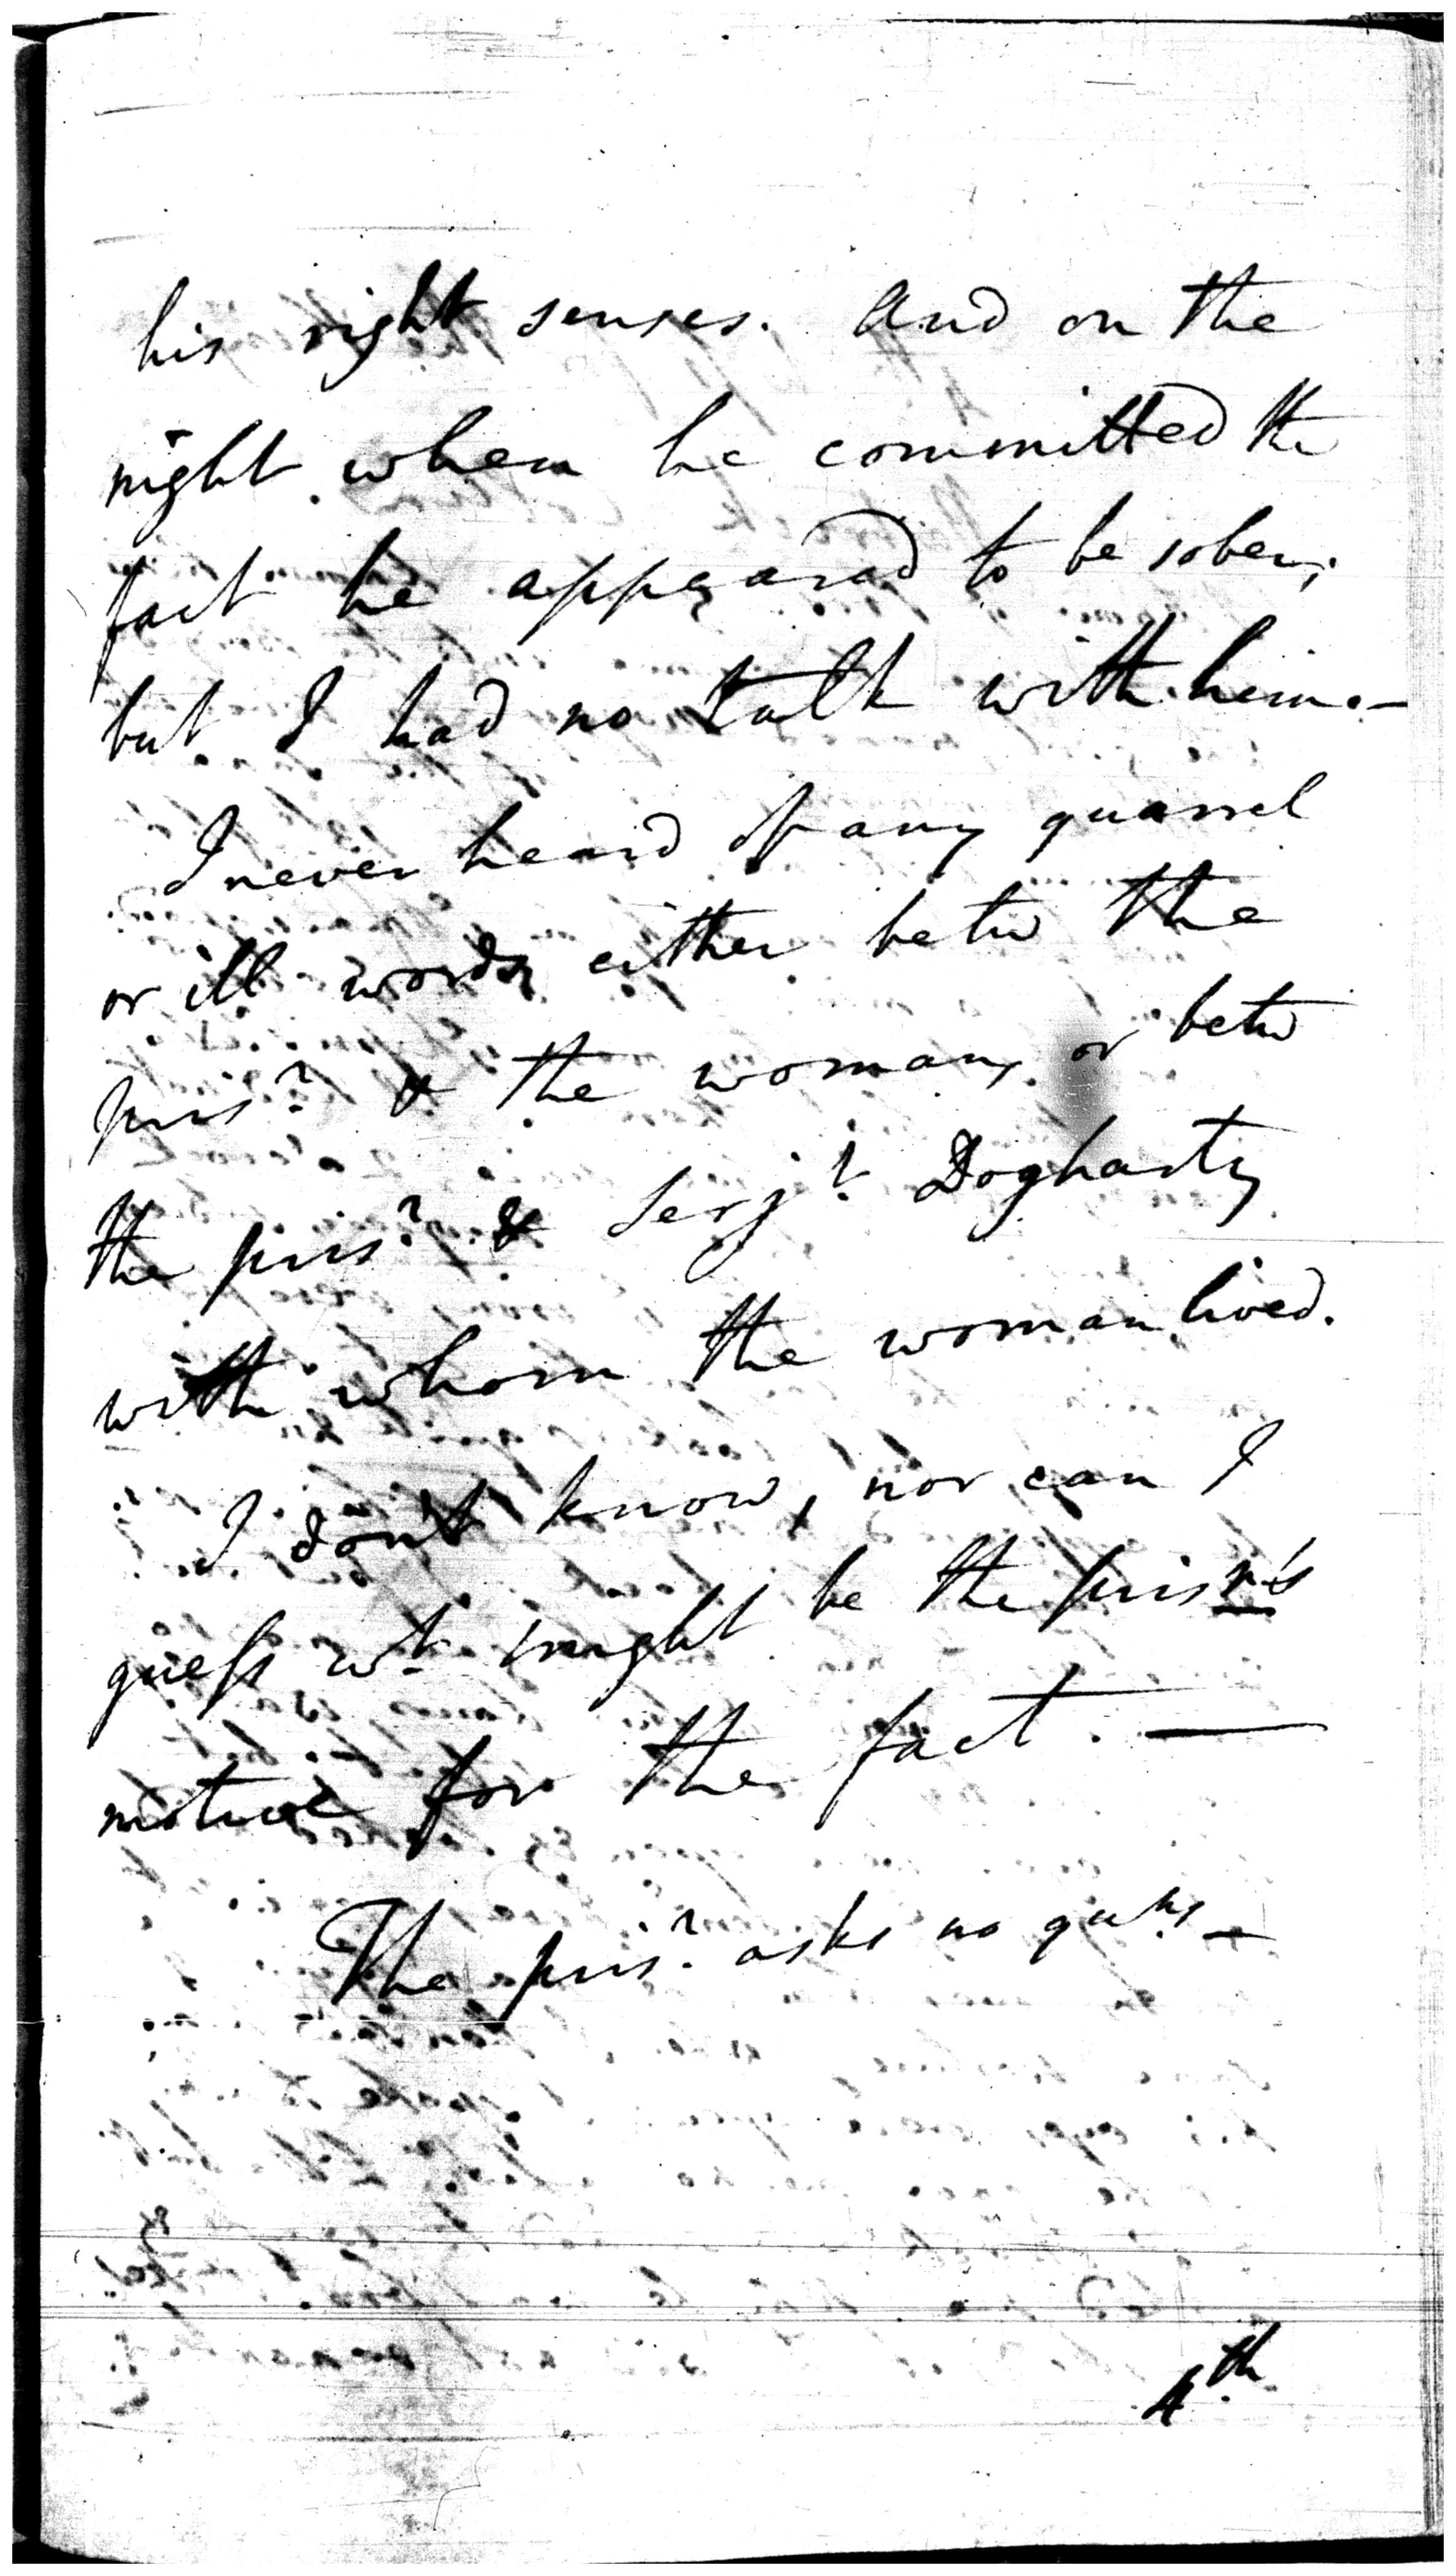 his right senses. And on the
night when he committed the
fact he appeared to be sober;
but I had no talk with him.—
I never heard of any quarrel
or ill words either betw the
pris.r & the woman, or betw
the pris.r & Serj.t Dogharty
with whom the woman lived.
I don't know, nor can I
guess w.t might be the prisr's
motive for the fact. —
The pris.r asks no qu.ns —
4.th